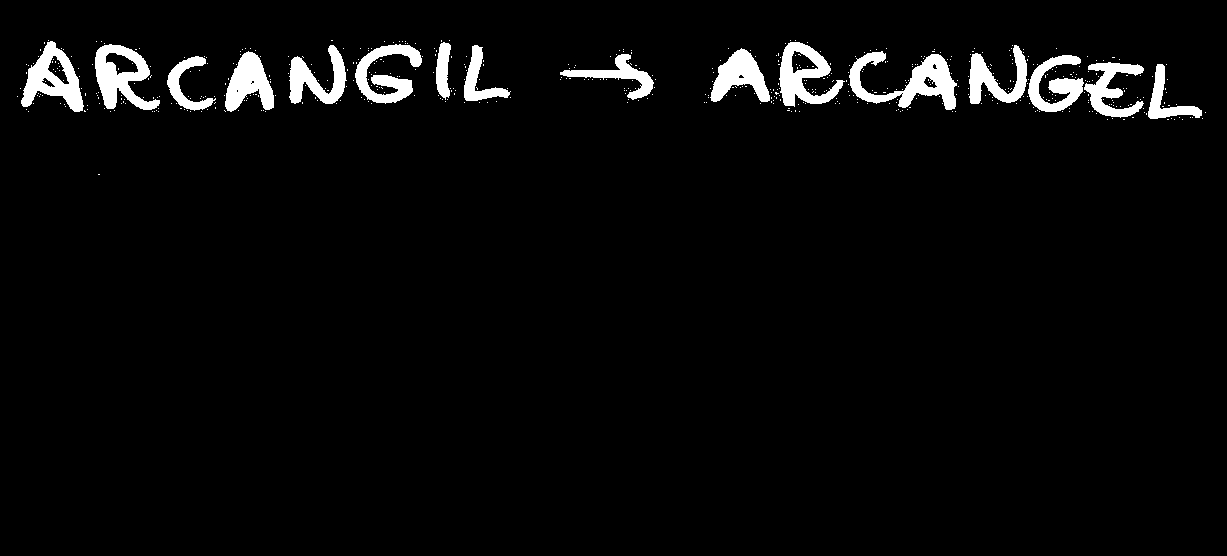 ARCANGIL → ARCANGEL